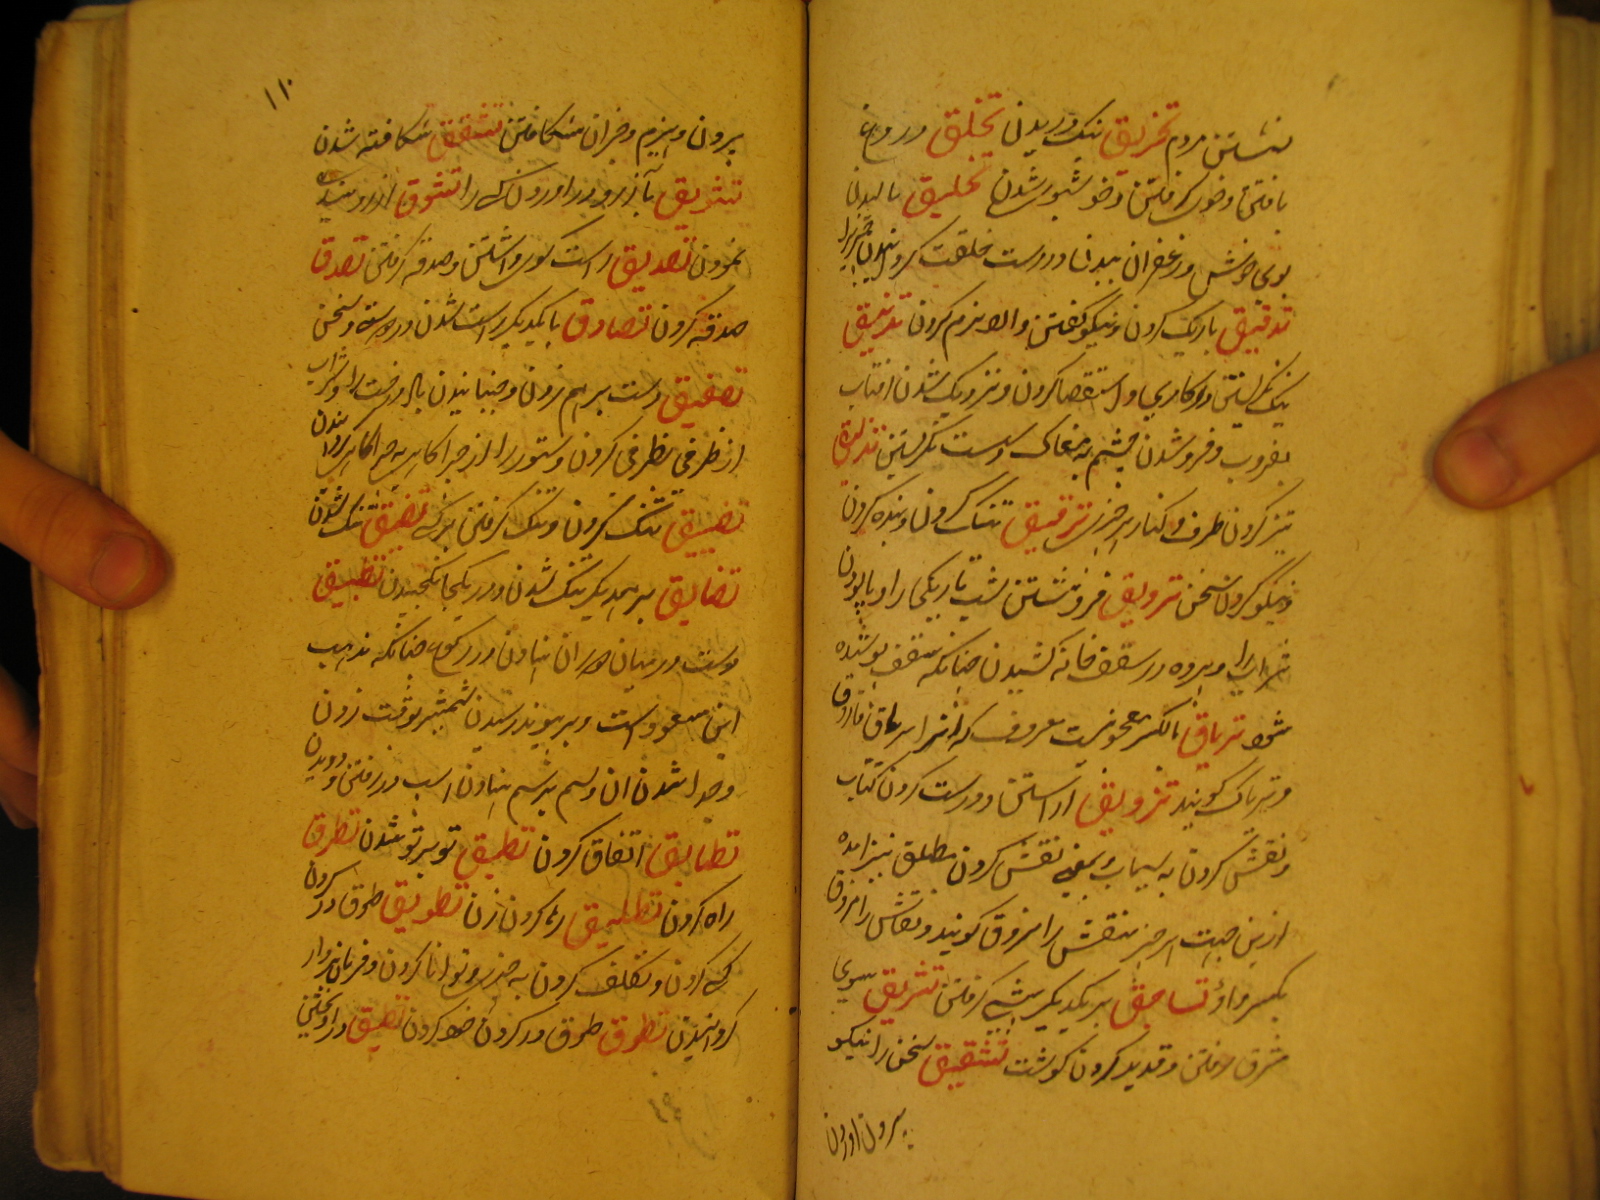 نشستن مردم تخریق نیک دریدن تخلق دروغ
بافتن و خوی گرفتن و خوشبو شدن تخلیق مالیدن
بوی خوش و زعفران ببدن و درست خلقت گردانیدن چیزیرا
تدقیق باریک کردن و نیکو کفتن و الا نرم کردن تدنیق
نیک نکریستن در کاری و استقصا کردن و نزدیک شدن افتاب
بغروب و فرو شدن چشم به مغاک و سست نکریستن تذلیق
تیز کردن طرف و کنار هر چیز ترقیق تنک کردن و بنده کردن
و نیکو کردن سخن ترویق فرو هشتن شب تاریکی را و پالودن
شراب را و پرده در سقف خانه کشیدن چنانکه سقف پوشیده
شود تریاق بالکسر معجونیست معروف که انرا تریاق فاروق
و تریاک کویند تزویق اراستن و درست کردن کتاب
و نقش کردن به سیماب و بمعنی نقش کردن مطلق نیز امده
ازین جهت هر چیز منقش را مزوق کویند و نقاش را مزوق
بکسر واو تساحق بر یکدیکر پیشی کرفتن تشریق سوی
مشرق رفتن و قدید کردن کوشت تشقیق سخن را نیکو
بیرون اوردن
۱۱۰
بردن و هیزم و جز ان شکافتن تشقق شکافته شدن
تشویق بآرزو در اوردن کسی را تشوق ارزومندی
نمودن تصدیق راست کوی داشتن و صدقه کرفتن تصدق
صدقه کردن تصادق با یکدیکر راست شدن در دوستی و سخن
تصفیق دست بر هم زدن و جنبانیدن باد درخت را و شراب
از ظرفی بظرفی کردن و ستور را از چراکاهی به چراکاهی بردن
تضییق تنک کردن و تنک کرفتن بر کسی تضیق تنک شدن
تضایق بر همدیکر تنک شدن و در یکجا نکنجیدن تطبیق
دست در میان هر دو ران نهادن در رکوع چنانکه مذهب
ابن مسعود است و بر پیوند رسیدن شمشیر بوقت زدن
و جدا شدن ان و سم بر سم نهادن اسب در رفتن و دویدن
تطابق اتفاق کردن تطبق تو بر تو شدن تطرق
راه کردن تطلیق رها کردن زن تطویق طوق در کردن
کسی کردن و تکلف کردن به چیزی و توانا کردن و فرمان بردار
کردانیدن تطوق طوق در کردن خود کردن تعلیق در اویختن